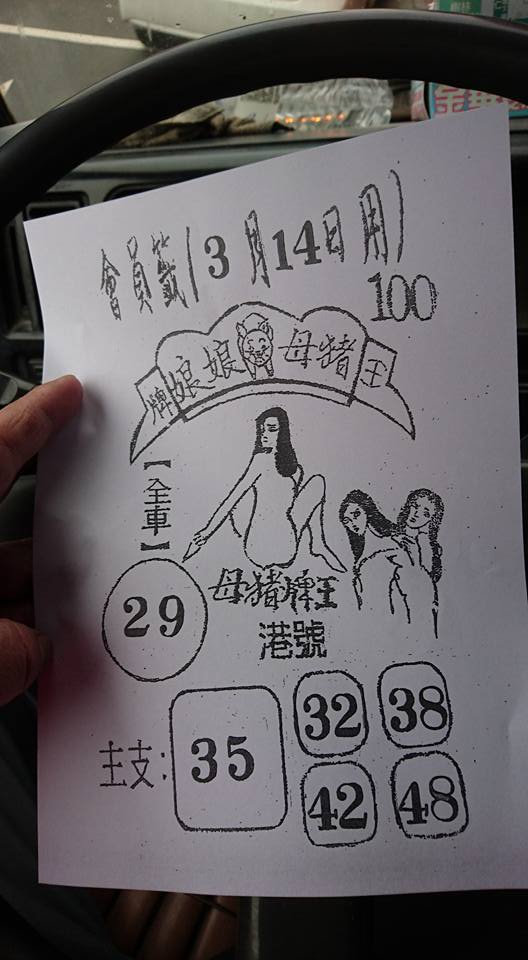 會員籤(3月14日用)
100
牌娘娘母豬王
【全車】
29
母豬牌王
港號
主支: 35
32 38
42 48